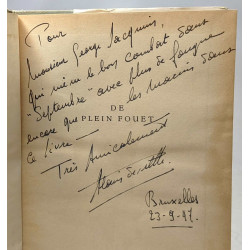 Pour
Monsieur George Jacquins,
qui mène le bon combat dans
"Septembre" avec plus de fougue
encore que les macins dans
DE
PLEIN FOUET
ce livre
Très Amicalement
Bruxelles
23-9-47.